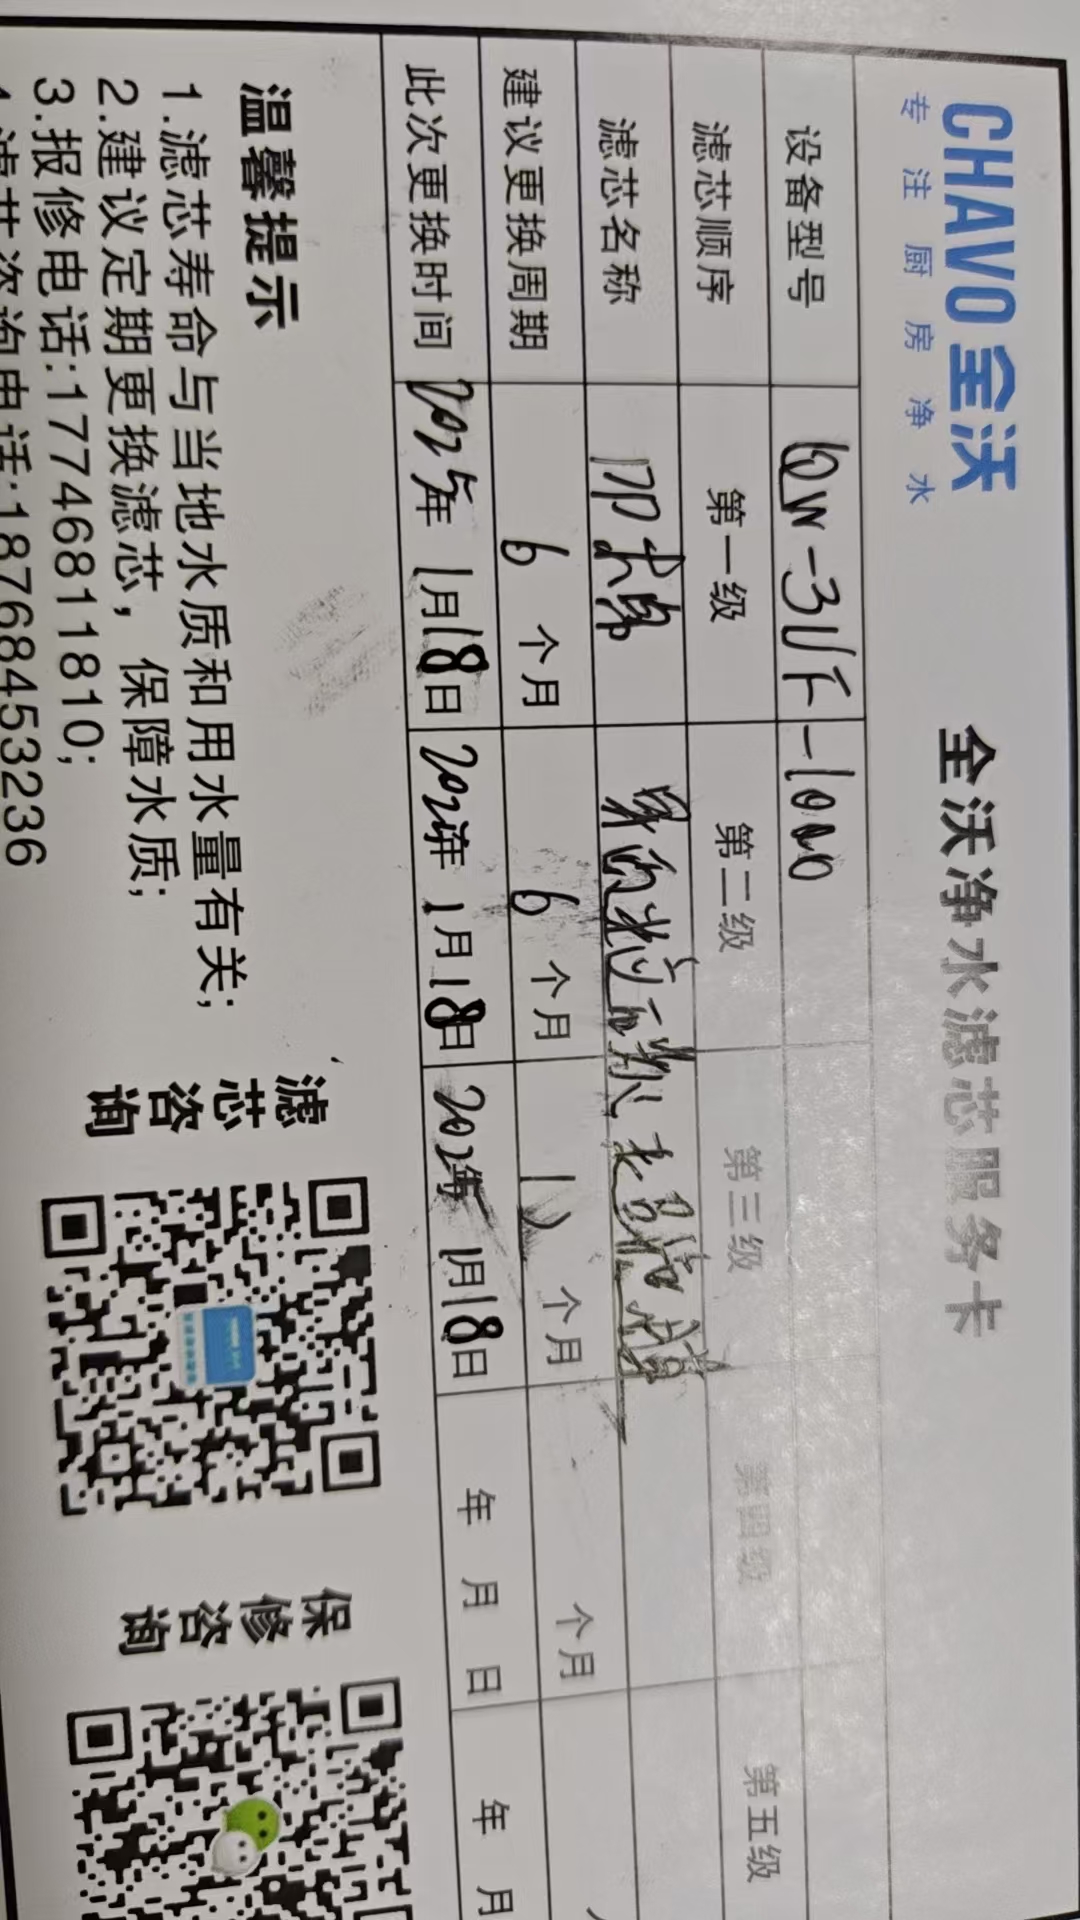 CHAVO 全沃
专注厨房净水
全沃净水滤芯服务卡
设备型号 QW-3UF-1000
滤芯顺序 第一级 第二级 第三级 第四级 第五级
滤芯名称
建议更换周期 6个月 6个月 12个月 个月
此次更换时间 2025年1月18日 2025年1月18日 2025年1月18日 年月日 年月
温馨提示
1.滤芯寿命与当地水质和用水量有关;
2.建议定期更换滤芯，保障水质;
3.报修电话:17746811810;
滤芯咨询电话:18768453236
滤芯咨询
保修咨询